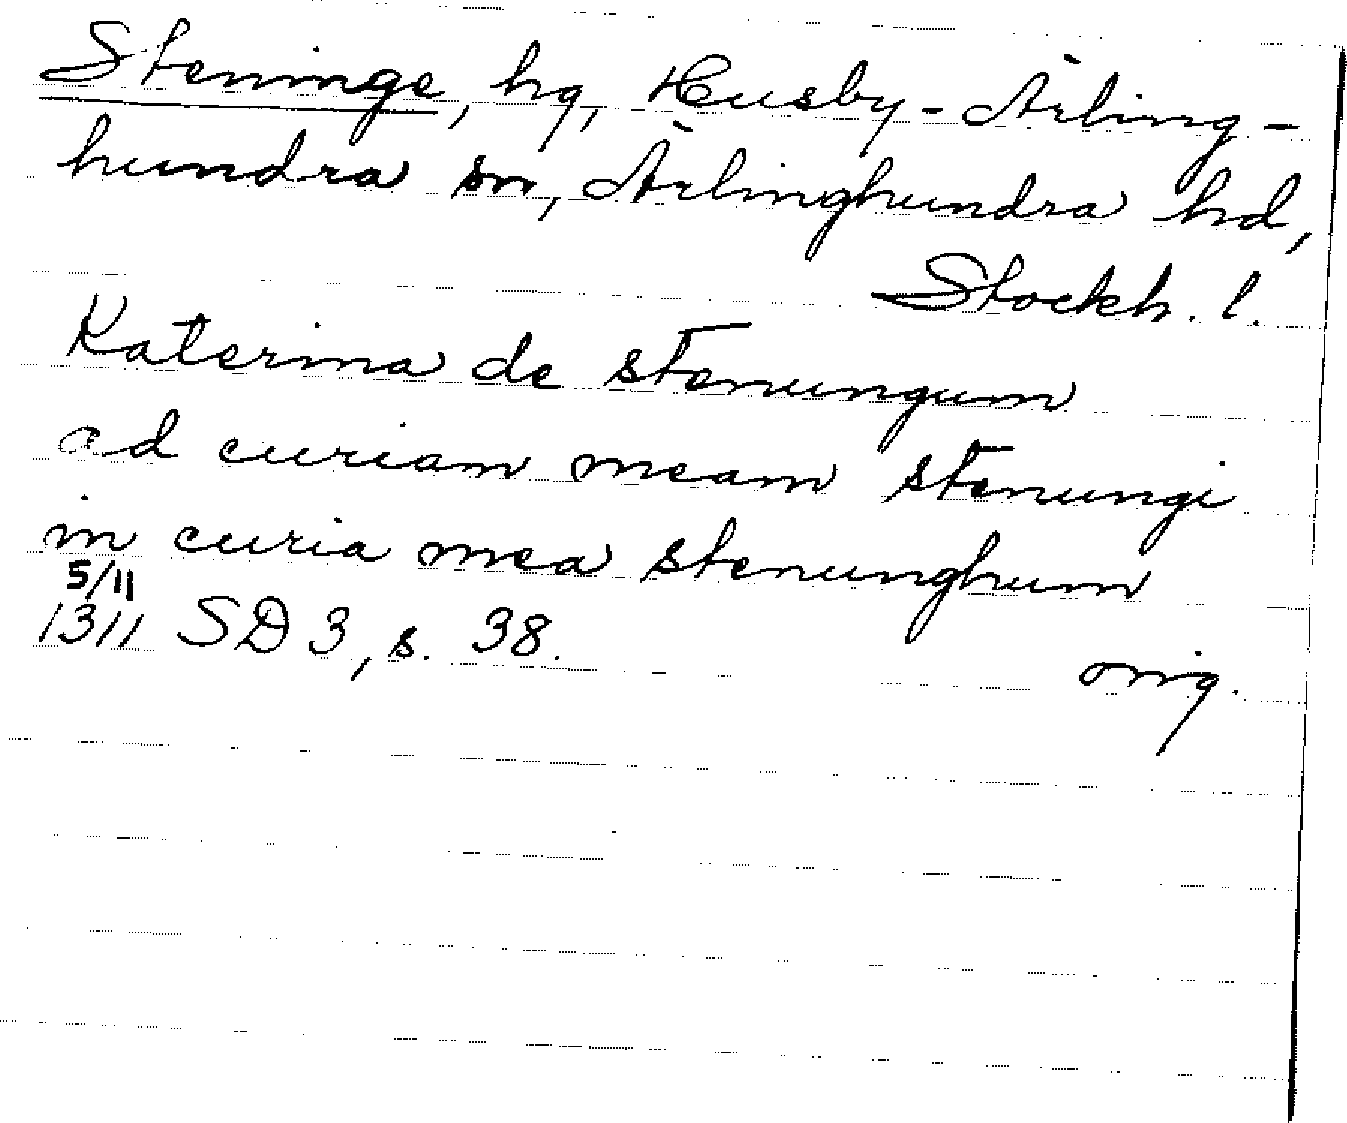 Steninge, hg, Husby-Ärling-
hundra sn, Ärlinghundra hd,
Stockh. l.
Katerina de stenungum
ad curiam meam stenungi
in curia mea stenunghum
5/11
1311 SD 3, s. 38.
orig.